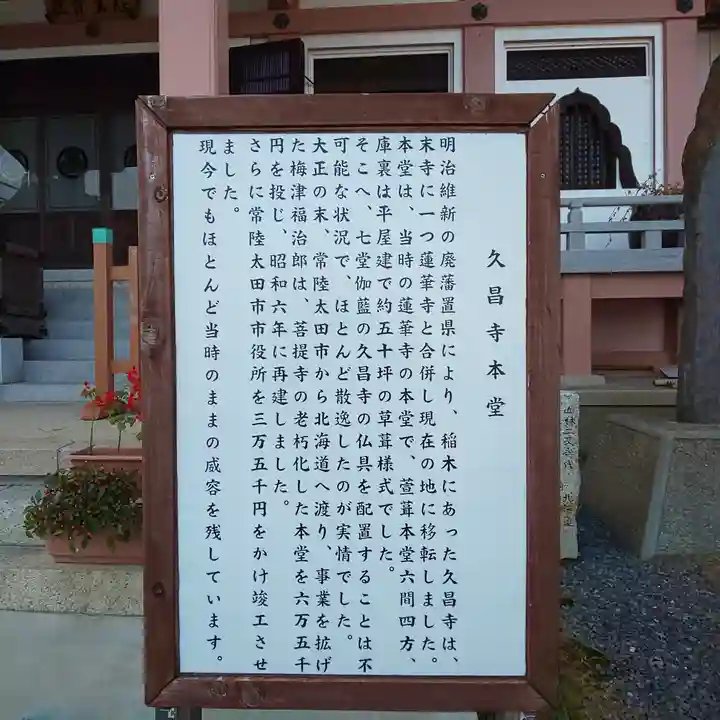 久昌寺本堂
明治維新の廃藩置県により、稲木にあった久昌寺は、
末寺に一つ蓮華寺と合併し現在の地に移転しました。
本堂は、当時の蓮華寺の本堂で、萱葺本堂六間四方、
庫裏は平屋建で約五十坪の草葺様式でした。
そこへ、七堂伽藍の久昌寺の仏具を配置することは不
可能な状況で、ほとんど散逸したのが実情でした。
大正の末、常陸太田市から北海道へ渡り、事業を拡げ
た梅津福治郎は、菩提寺の老朽化した本堂を六万五千
円を投じ、昭和六年に再建しました。
さらに常陸太田市市役所を三万五千円をかけ竣工させ
ました。
現今でもほとんど当時のままの威容を残しています。